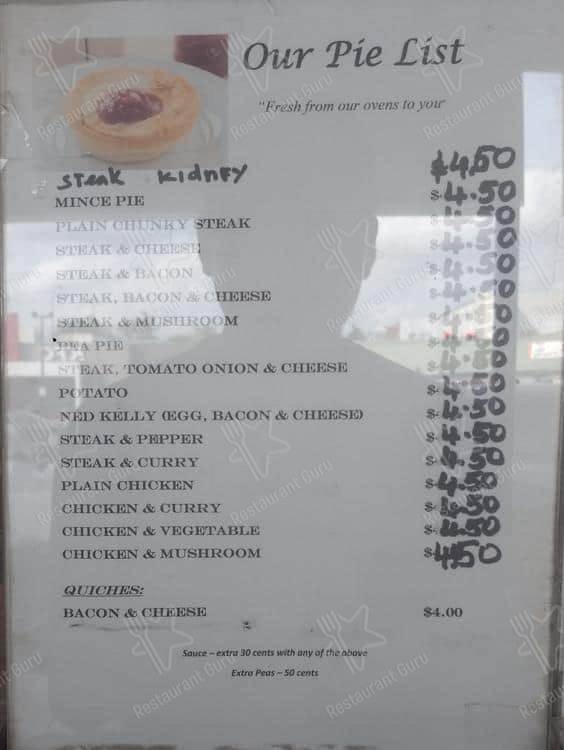 Our Pie List
"Fresh from our ovens to your
Steak Kidney $4.50
MINCE PIE $4.50
PLAIN CHUNKY STEAK $4.50
STEAK & CHEESE $4.50
STEAK & BACON $4.50
STEAK, BACON & CHEESE $4.50
STEAK & MUSHROOM $4.50
PEA PIE $4.50
STEAK, TOMATO ONION & CHEESE $4.50
POTATO $4.50
NED KELLY (EGG, BACON & CHEESE) $4.50
STEAK & PEPPER $4.50
STEAK & CURRY $4.50
PLAIN CHICKEN $4.50
CHICKEN & CURRY $4.50
CHICKEN & VEGETABLE $4.50
CHICKEN & MUSHROOM $4.50
QUICHES:
BACON & CHEESE $4.00
Sauce – extra 30 cents with any of the above
Extra Peas – 50 cents
Restaurant Guru